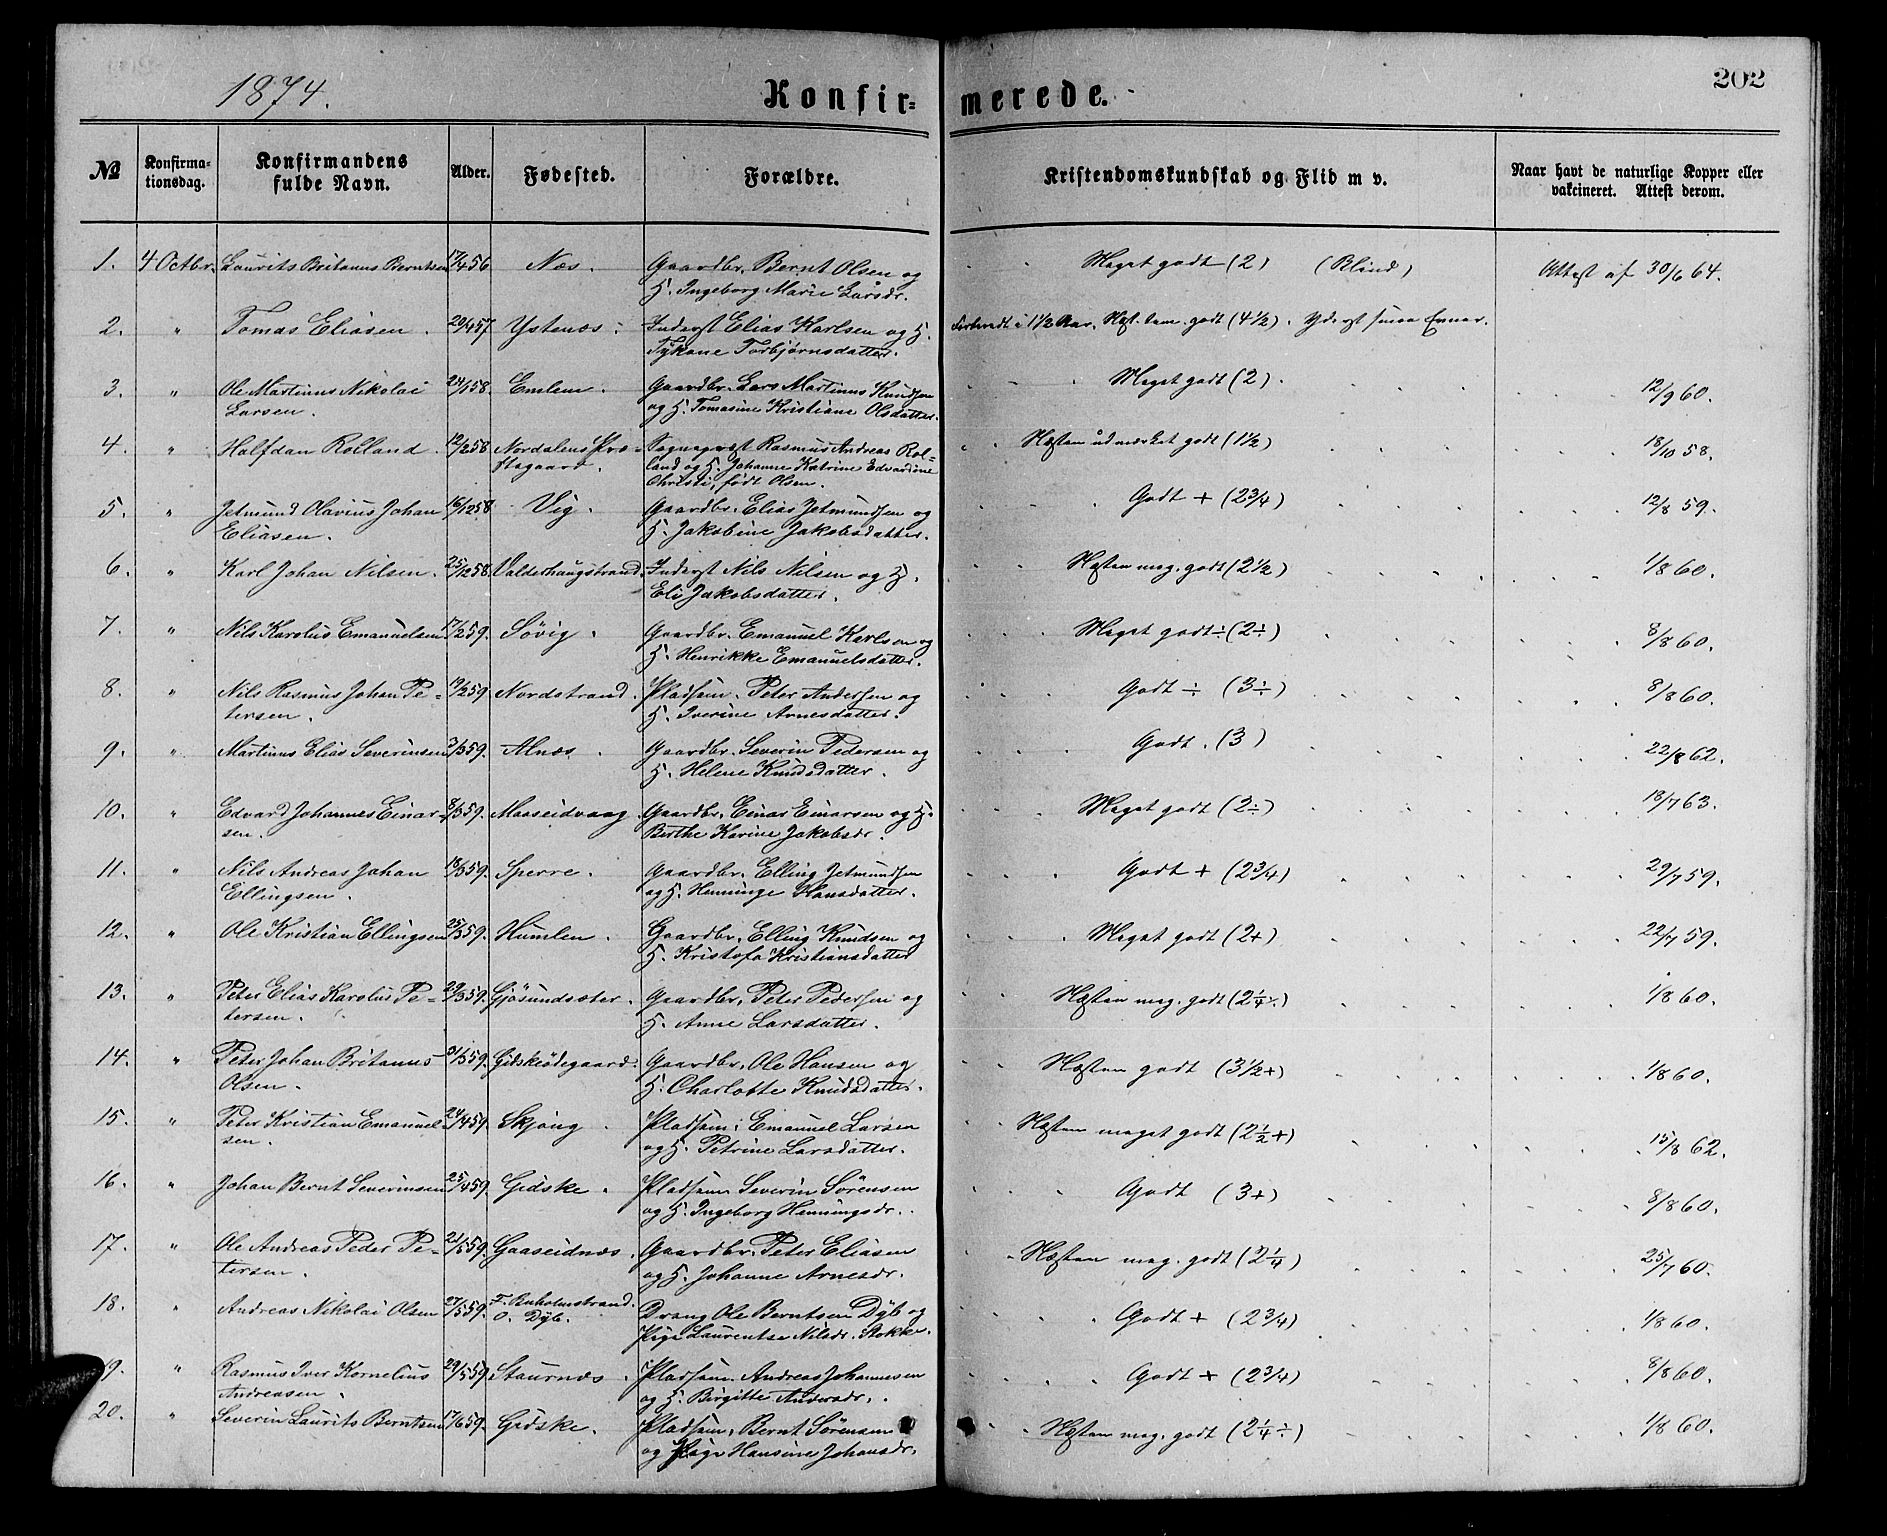 1874.
Konfir=
merede.
202
No
Konfirma=
tionsdag.
Konfirmandens
fulde Navn.
Alder.
Fødested.
Forældre.
Kristendomskundskab og Flid m v.
Naar havt de naturlige Kopper eller
vakcineret. Attest derom.
1. 4 Octbr. Laurits Britanus Berntsen 17/4 56 Næs. Gaardbr. Bernt Olsen og Meget godt (2) (Blind) Attest af 30/6 64.
H. Ingeborg Marie Larsdr.
2. " Tomas Eliasen. 20/4 57 Ystenæs. Inderst Elias Karlsen og H. Forberedt i 1 1/2 Aar. Næst. tem. godt (4 1/2). Yderst smaa Evner.
Torbjørnsdatter.
3. " Ole Martinus Nikolai 24/1 58. Emlem. Gaardbr. Lars Martinus Knudsen Meget godt (2). 12/9 60.
Larsen. og H. Tomasine Kristiane Olsdatter.
4. " Halfdan Rolland. 12/2 58 Nordalens Præ= Sogneprest Rasmus Andreas Rol= Næsten udmærket godt (1 1/2) 18/10 58.
stegaard. land og H. Johanne Katrine Edvardine
Christi, født Olsen.
5. " Jetmund Olavius Johan 16/12 58 Vig. Gaardbr. Elias Jetmundsen og Godt + (2 3/4) 12/8 59.
Eliasen. H. Jakobine Jakobsdatter.
6. " Karl Johan Nilsen. 25/12 58. Valderhaugstrand. Inderst Nils Nilsen og H. Næsten meg. godt (2 1/2) 1/8 60.
Eli Jakobsdatter.
7. " Nils Karolus Emanuelsen 17/2 59. Søvig. Gaardbr. Emanuel Karlsen og Meget godt ÷ (2÷) 8/8 60.
H. Henrikke Emanuelsdatter.
8. " Nils Rasmus Johan Pe= 19/2 59. Nordstrand. Pladsm. Peter Andersen og Godt ÷ (3÷) 8/8 60.
tersen. H. Iverine Arnesdatter.
9. " Martinus Elias Severinsen 3/3 59. Alnæs. Gaardbr. Severin Pedersen og Godt. (3) 22/8 62.
H. Helene Knudsdatter.
10. " Edvard Johannes Einar= 8/3 59. Maaseidvaag. Gaardbr. Einar Einarsen og H. Meget godt (2÷) 18/7 63.
sen. Birthe Karine Jakobsdr.
11. " Nils Andreas Johan 18/3 59. Sperre. Gaardbr. Elling Jetmundsen Godt + (2 3/4) 29/7 59.
Ellingsen. og H. Henninge Hansdatter.
12. " Ole Kristian Ellingsen 25/3 59. Humlen. Gaardbr. Elling Knudsen og Meget godt (2+) 22/7 59.
H. Kristofa Kristiansdatter
13. " Peter Elias Karolus Pe= 29/3 59. Gjøsundsæter. Gaardbr. Peter Pedersen og Næsten meg. godt (2 1/4 ÷) 1/8 60.
tersen. H. Anne Larsdatter.
14. " Peter Johan Britanus 31/3 59. Gidskeødegaard. Gaardbr. Ole Hansen og Næsten godt (3 1/2 +) 1/8 60.
Olsen. H. Charlotte Knudsdatter.
15. " Peter Kristian Emanuel= 24/4 59. Skjong. Pladsm. Emanuel Larsen Næsten meget godt (2 1/2 +) 15/8 62.
sen. og H. Petrine Larsdatter.
16. " Johan Bernt Severinsen 25/4 59. Gidske. Pladsm. Severin Sørensen Godt (3+) 8/8 60.
og H. Ingeborg Henningsdr.
17. " Ole Andreas Peder Pe= 21/5 59. Gaaseidnæs. Gaardbr. Peter Eliasen Næsten meg. godt (2 1/4) 25/7 60.
tersen. og H. Johanne Arnesdr.
18. " Andreas Nikolai Olsen 27/5 59. F. Buholmstrand. Dreng Ole Berntsen Dyb og Godt + (2 3/4) 1/8 60.
O. Dyb. Pige Laurentse Nilsdr. Stokke.
19. " Rasmus Iver Kornelius 29/5 59. Staurnæs. Pladsm. Andreas Johannesen Godt + (2 3/4) 8/8 60.
Andreasen. og H. Birgitte Andersdr.
20. " Severin Laurits Berntsen 17/6 59. Gidske. Pladsm. Bernt Sørensen Næsten meg. godt (2 1/4 ÷) 1/8 60.
og Pige Hansine Johansdr.